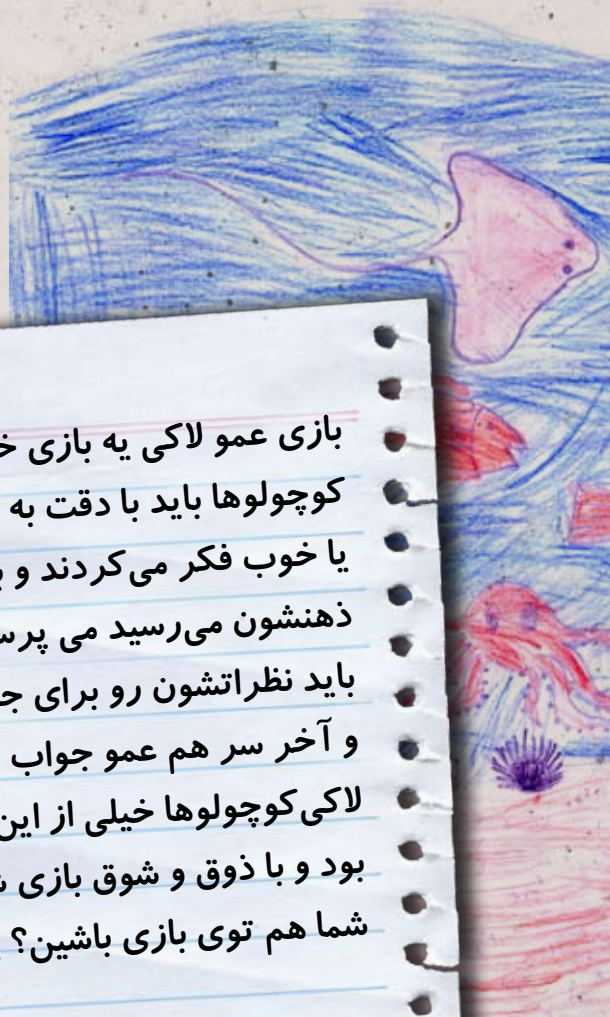 بازی عمو لاکی یه بازی
کوچولوها باید با دقت به
یا خوب فکر می‌کردند و
ذهنشون می‌رسید می
باید نظراتشون رو برای
و آخر سر هم عمو جواب
لاکی‌کوچولوها خیلی از این
بود و با ذوق و شوق بازی
شما هم توی بازی باشین؟